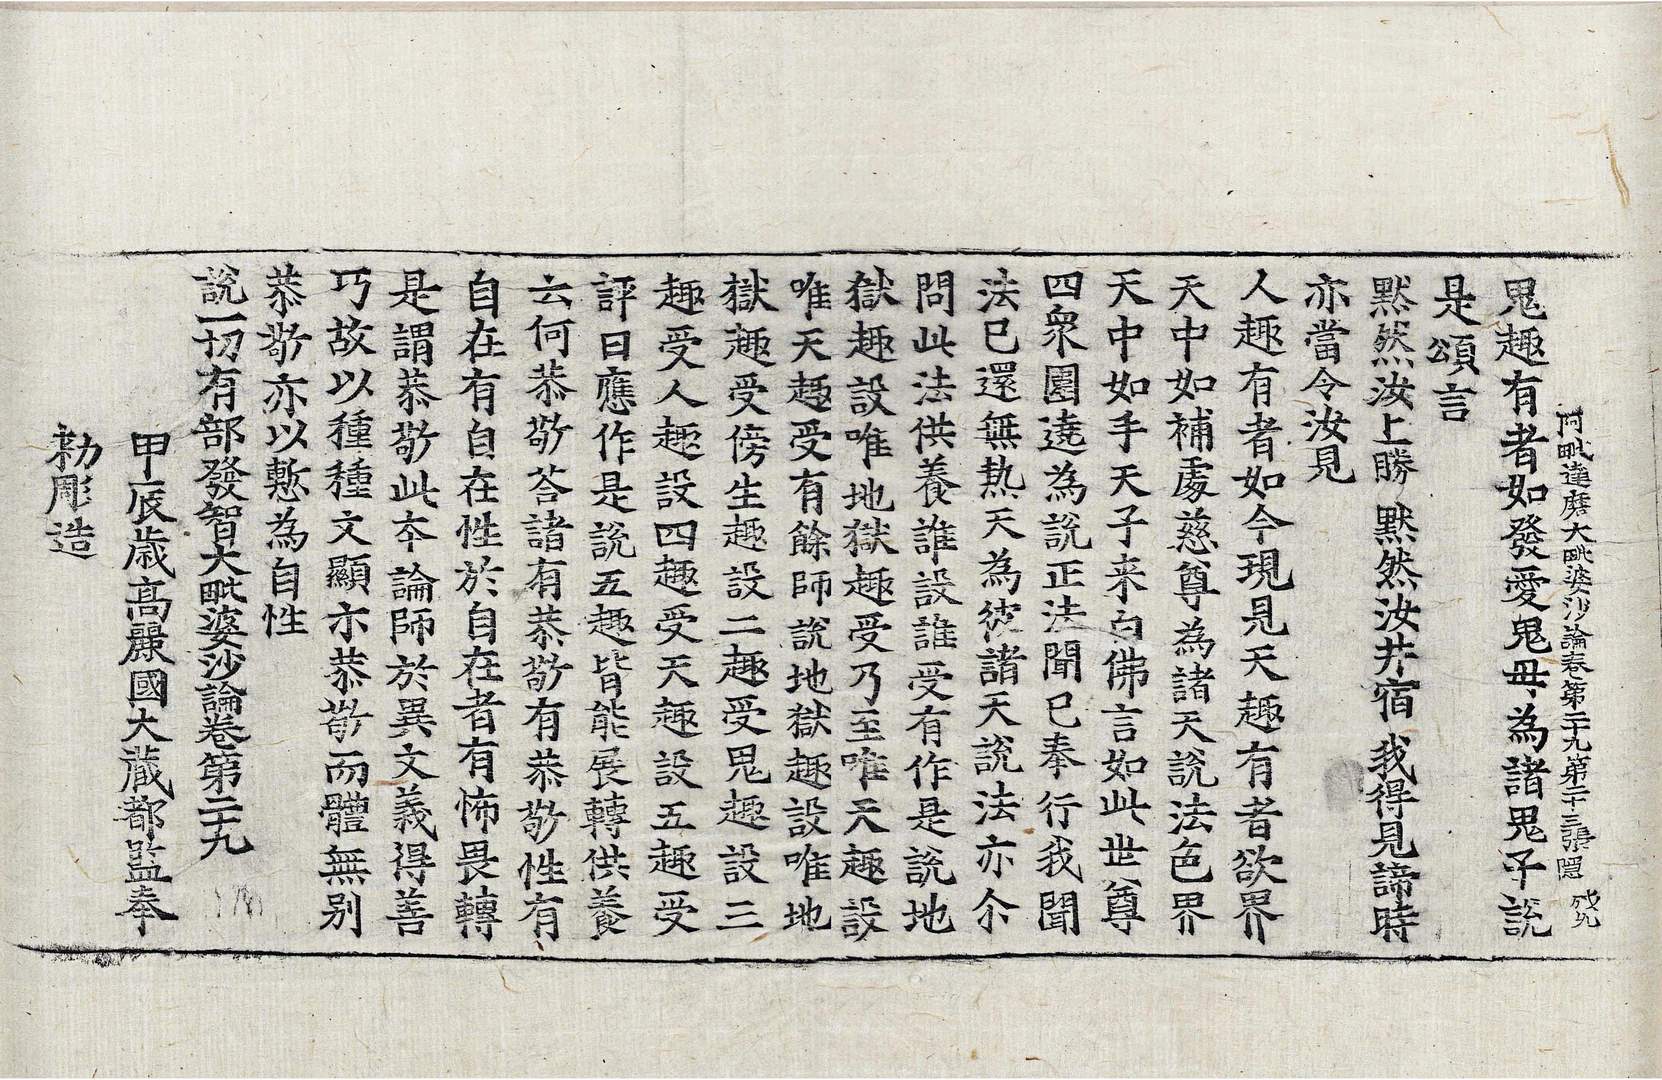 阿毗達磨大毗婆沙論卷第二十九第二十三張隱
鬼趣有者如發愛鬼母為諸鬼子說
是頌言
黙然汝上勝 黙然汝井宿 我得見諦時
亦當令汝見
人趣有者如今現見天趣有者欲界
天中如補處慈尊為諸天說法色界
天中如手天子来白佛言如此世尊
四衆圍遶為說正法聞已奉行我聞
法已還無熱天為彼諸天說法亦尒
問此法供養誰設誰受有作是說地
獄趣設唯地獄趣受乃至唯天趣設
唯天趣受有餘師說地獄趣設唯地
獄趣受傍生趣設二趣受鬼趣設三
趣受人趣設四趣受天趣設五趣受
評曰應作是說五趣皆能展轉供養
云何恭敬荅諸有恭敬有恭敬性有
自在有自在性於自在者有怖畏轉
是謂恭敬此夲論師於異文義得善
巧故以種種文顯示恭敬而體無別
恭敬亦以慙為自性
說一切有部發智大毗婆沙論卷第二十九
甲辰歲高麗國大藏都監奉
勑彫造